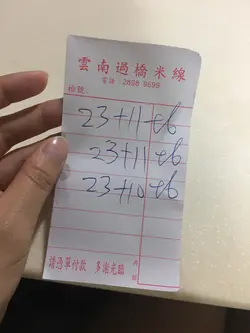 雲南過橋米線
電話：2808 9699
枱號：
23+11+6
23+11+6
23+10+6
請憑單付款 多謝光臨